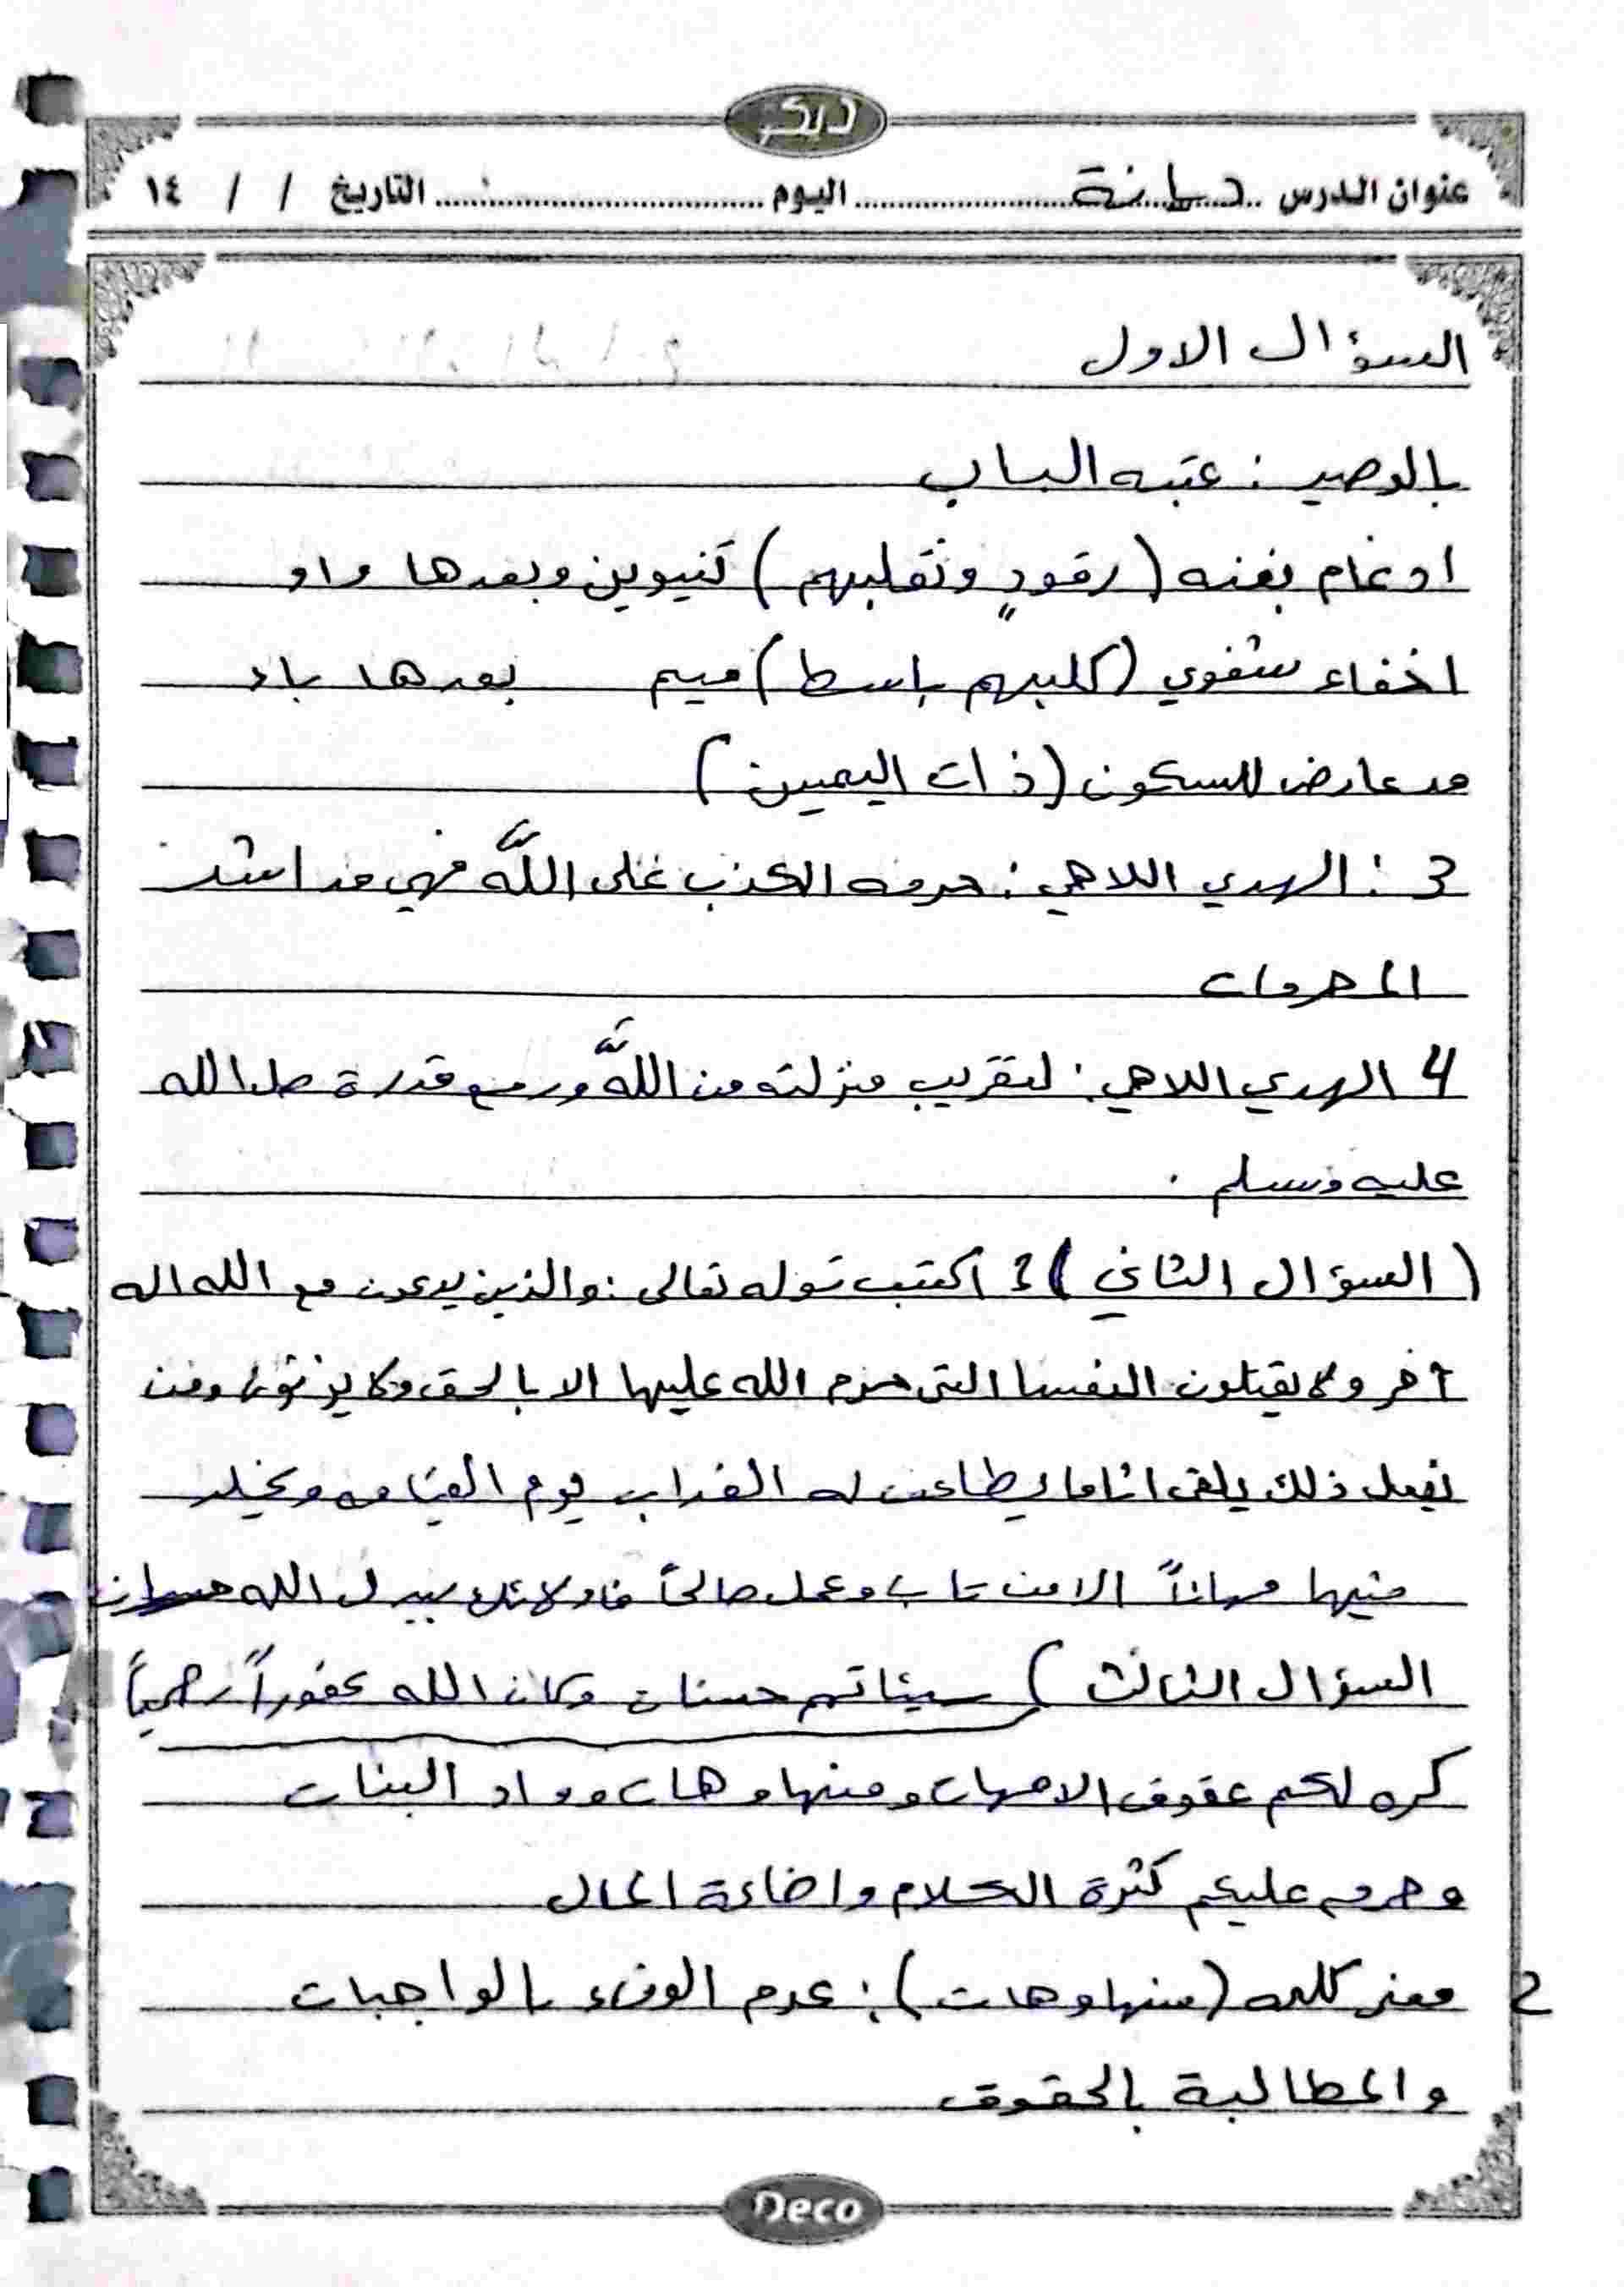 ديكو
عنوان الدرس ديانة اليوم التاريخ / / ١٤
السؤال الاول
بالوصيد : عتبه الباب
ادغام بغنه (رقودٍ ونقلبهم) تنيوين وبعدها واو
اخفاء شفوي (كلبهم باسط) ميم بعدها باء
مد عارض للسكون (ذات اليمين)
3 : الهدي اللاهي : حرمه الكذب على اللَّه فهي من اشد
المحرمات
4 الهدي اللاهي : لتقريب منزلته من اللَّه ورفع قدرة صلىالله
عليه وسلم .
(السؤال الثاني) 1 اكتب قوله تعالى : والذين يدعون مع الله اله
آخر ولا يقتلون النفسا التي حرم الله عليها الا بالحق ولا يزنون ومن
يفعل ذلك يلقى اثاما يطاعف له العذاب يوم القيامه ويخلد
فيها مهاناً الا من تاب وعمل صالحاً فاولائك يبدل الله
السؤال الثالث) سيئاتهم حسنات وكان الله غفوراً رحيماً
كره لكم عقوق الامهات ومنها وهات وواد البنات
وحرم عليكم كثرة الكلام واضاعة المال
2 معنى كلمه (منها وهات) : عدم الوفاء بالواجبات
والمطالبة بالحقوق
Deco